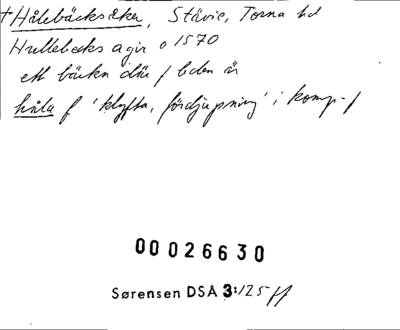 †Hålebäcksåker, Stävie, Torna hd
Hullebecks agir o 1570
ett bäckn där f leden är
håla f 'klyfta, fördjupning' i komp-f
00026630
Sørensen DSA 3:125 ff